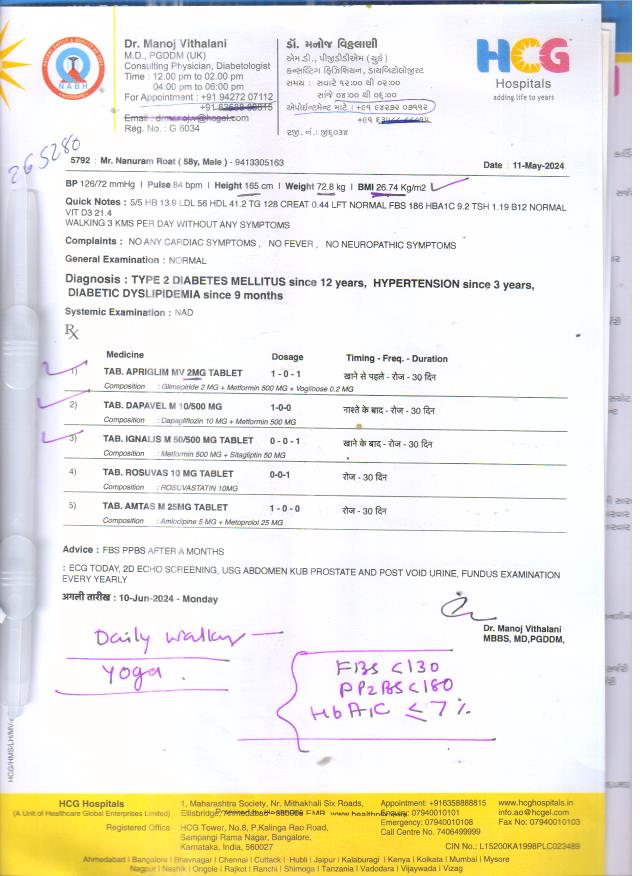 Dr. Manoj Vithalani
M.D., PGDDM (UK)
Consulting Physician, Diabetologist
Time : 12.00 pm to 02.00 pm
04:00 pm to 06:00 pm
For Appointment : +91 94272 07112
+91 63588 88815
Email : drmanoj.v@hcgel.com
Reg. No. : G 6034
NABH
ડૉ. મનોજ વિઠ્ઠલાણી
એમ.ડી., પીજીડીડીએમ (યુકે)
કન્સલ્ટિંગ ફિઝિશિયન, ડાયાબિટોલોજીસ્ટ
સમય : સવારે ૧૨:૦૦ થી ૦૨:૦૦
સાંજે ૦૪:૦૦ થી ૦૬:૦૦
એપોઈન્ટમેન્ટ માટે : +૯૧ ૯૪૨૭૨ ૦૭૧૧૨
+૯૧
રજી. નં.: જી૬૦૩૪
HCG
Hospitals
adding life to years
265280
5792 : Mr. Nanuram Roat ( 58y, Male ) - 9413305163
Date : 11-May-2024
BP 126/72 mmHg | Pulse 84 bpm | Height 165 cm | Weight 72.8 kg | BMI 26.74 Kg/m2
Quick Notes : 5/5 HB 13.9 LDL 56 HDL 41.2 TG 128 CREAT 0.44 LFT NORMAL FBS 186 HBA1C 9.2 TSH 1.19 B12 NORMAL
VIT D3 21.4
WALKING 3 KMS PER DAY WITHOUT ANY SYMPTOMS
Complaints : NO ANY CARDIAC SYMPTOMS , NO FEVER , NO NEUROPATHIC SYMPTOMS
General Examination : NORMAL
Diagnosis : TYPE 2 DIABETES MELLITUS since 12 years, HYPERTENSION since 3 years,
DIABETIC DYSLIPIDEMIA since 9 months
Systemic Examination : NAD
Rx
Medicine Dosage Timing - Freq. - Duration
1) TAB. APRIGLIM MV 2MG TABLET 1 - 0 - 1 खाने से पहले - रोज - 30 दिन
Composition : Glimepiride 2 MG + Metformin 500 MG + Voglibose 0.2 MG
2) TAB. DAPAVEL M 10/500 MG 1-0-0 नाश्ते के बाद - रोज - 30 दिन
Composition : Dapagliflozin 10 MG + Metformin 500 MG
3) TAB. IGNALIS M 50/500 MG TABLET 0 - 0 - 1 खाने के बाद - रोज - 30 दिन
Composition : Metformin 500 MG + Sitagliptin 50 MG
4) TAB. ROSUVAS 10 MG TABLET 0-0-1 रोज - 30 दिन
Composition : ROSUVASTATIN 10MG
5) TAB. AMTAS M 25MG TABLET 1 - 0 - 0 रोज - 30 दिन
Composition : Amlodipine 5 MG + Metoprolol 25 MG
Advice : FBS PPBS AFTER A MONTHS
: ECG TODAY, 2D ECHO SCREENING, USG ABDOMEN KUB PROSTATE AND POST VOID URINE, FUNDUS EXAMINATION
EVERY YEARLY
अगली तारीख : 10-Jun-2024 - Monday
Dr. Manoj Vithalani
MBBS, MD,PGDDM,
Daily walk
Yoga.
FBS <130
PP2BS <180
HbA1C ≤ 7 %
HCG/HMS/LH/MV-
HCG Hospitals
(A Unit of Healthcare Global Enterprises Limited)
Registered Office
1, Maharashtra Society, Nr. Mithakhali Six Roads,
Ellisbridge, Ahmedabad - 380006
HCG Tower, No.8, P.Kalinga Rao Road,
Sampangi Rama Nagar, Bangalore,
Karnataka, India, 560027
Appointment: +916358888815
Enquiry: 07940010101
Emergency: 07940010108
Call Centre No. 7406499999
www.hcghospitals.in
info.ao@hcgel.com
Fax No: 07940010103
CIN No.: L15200KA1998PLC023489
Ahmedabad | Bangalore | Bhavnagar | Chennai | Cuttack | Hubli | Jaipur | Kalaburagi | Kenya | Kolkata | Mumbai | Mysore
Nagpur | Nashik | Ongole | Rajkot | Ranchi | Shimoga | Tanzania | Vadodara | Vijaywada | Vizag